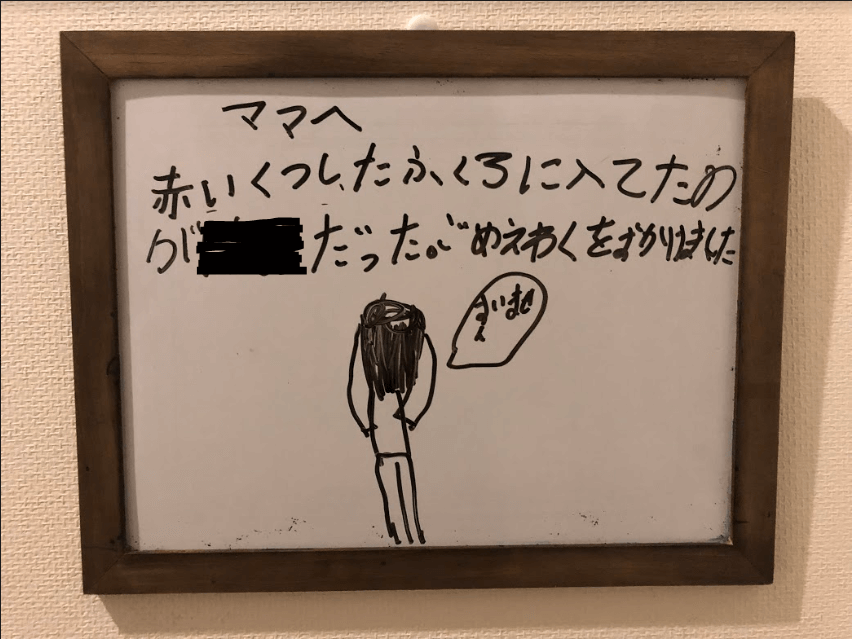 ママへ
赤いくつしたふくろに入てたの
が だった。ごめえわくをおかけしました
すいません